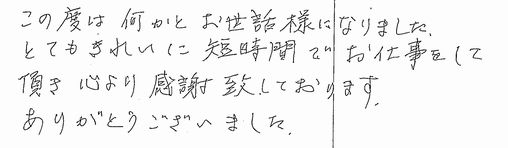 この度は何かとお世話様になりました.
とてもきれいに短時間でお仕事をして
頂き心より感謝致しております.
ありがとうございました.